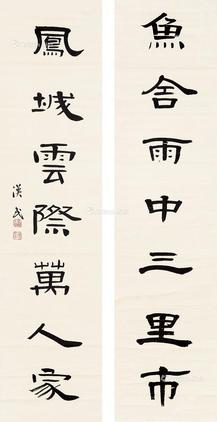 魚舍雨中三里市
鳳城雲際萬人家
漢民